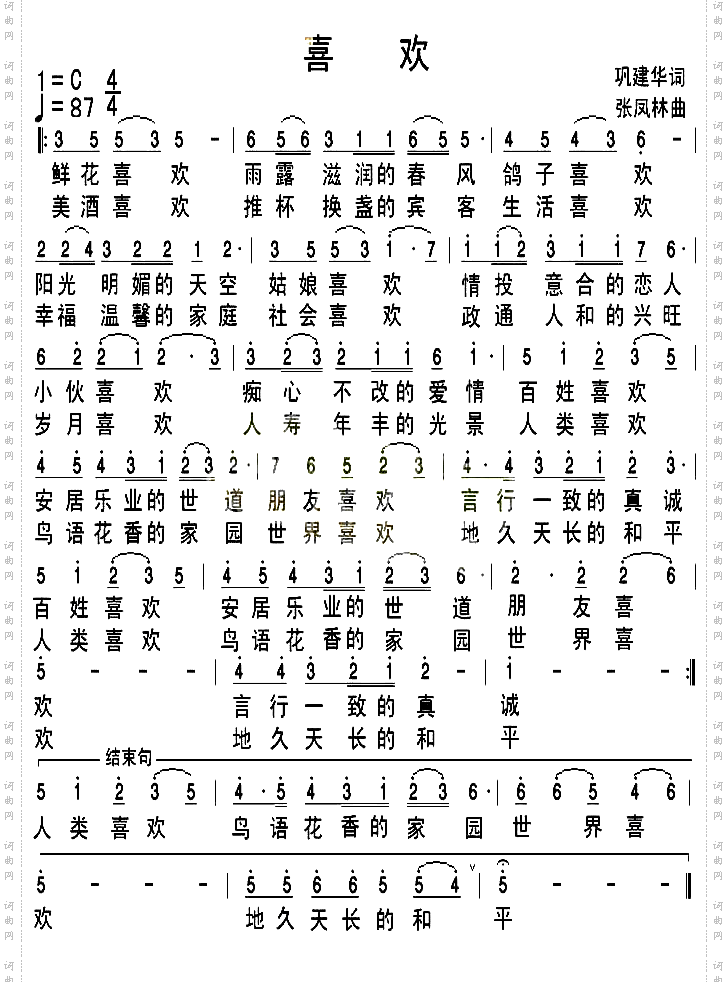 喜 欢
1=C 4/4
♩=87
巩建华词
张凤林曲
3 5 5 3 5 - | 6 5 6 3 1 1 6 5 5· | 4 5 4 3 6 - |
鲜花喜 欢 雨露 滋润的春 风 鸽子喜 欢
美酒喜 欢 推杯 换盏的宾 客 生活喜 欢
2 2 4 3 2 2 1 2· | 3 5 5 3 1·7 | 6 1 2 3 1 1 7 6· |
阳光 明媚的天空 姑娘喜 欢 情投 意合的恋人
幸福 温馨的家庭 社会喜 欢 政通 人和的兴旺
6 2 2 1 2·3 | 3 2 3 2 1 1 6 1· | 5 1 2 3 5 |
小伙喜 欢 痴心 不改的爱情 百姓喜欢
岁月喜 欢 人寿 年丰的光景 人类喜欢
4 5 4 3 1 2 3 2· | 7 6 5 2 3 | 4·4 3 2 1 2 3· |
安居乐业的世 道朋友喜欢 言行一致的真诚
鸟语花香的家 园世界喜欢 地久天长的和平
5 1 2 3 5 | 4 5 4 3 1 2 3 6· | 2·2 2 6 |
百姓喜欢 安居乐业的世 道 朋 友喜
人类喜欢 鸟语花香的家 园 世 界喜
5 - - - | 4 4 3 2 1 2 - | 1 - - - :||
欢 言行一致的真 诚
欢 地久天长的和 平
结束句
5 1 2 3 5 | 4·5 4 3 1 2 3 6· | 5 6 6 5 4 6 |
人类喜欢 鸟语花香的家 园世 界喜
5 - - - | 5 5 6 6 5 5 4 | 5 - - - ||
欢 地久天长的和 平
词曲网